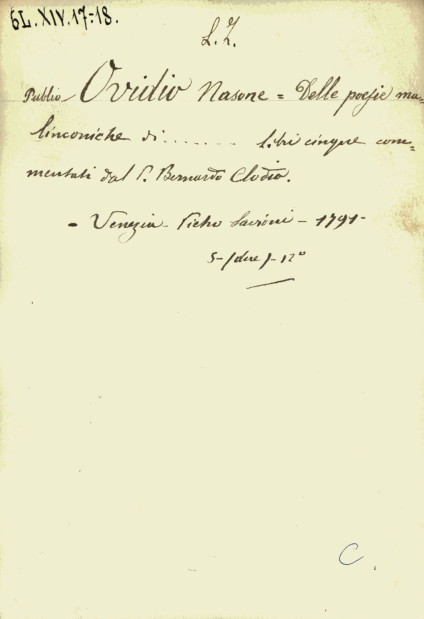 6L.XIV.17-18.
L. Z.
Publio Ovidio Nasone = Delle poesie ma=
linconiche di ....... libri cinque com=
mentati dal P. Bernardo Clodio.
- Venezia - Pietro Savioni - 1791-
5-(due)-12°
C.